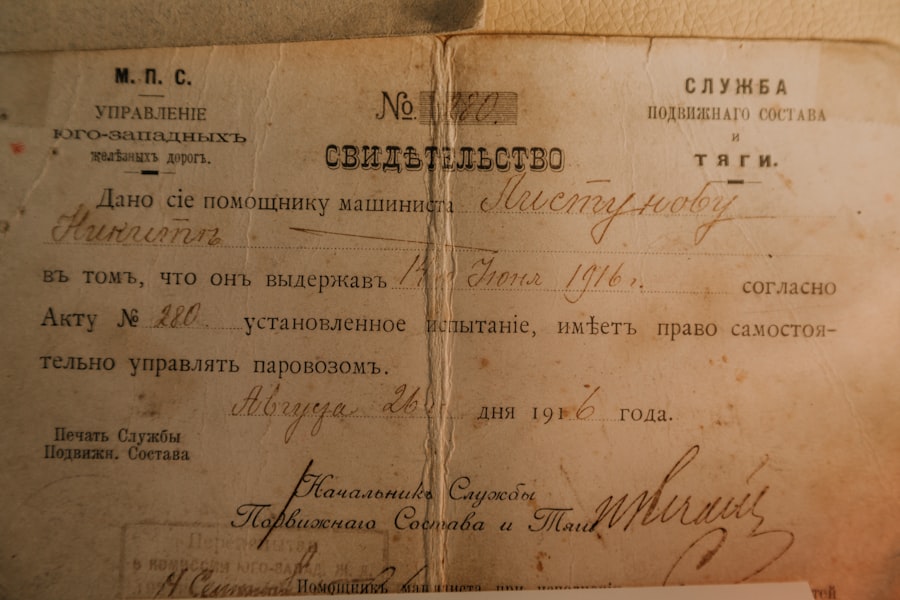 М. П. С.
УПРАВЛЕНІЕ
ЮГО-ЗАПАДНЫХЪ
желѣзныхъ дорогъ.
№ 280.
СВИДѢТЕЛЬСТВО
СЛУЖБА
ПОДВИЖНАГО СОСТАВА
и
ТЯГИ.
Дано сіе помощнику машиниста Пистунову
Никитѣ
въ томъ, что онъ выдержавъ Іюня 1916 г. согласно
Акту № 280 установленное испытаніе, имѣетъ право самостоя-
тельно управлять паровозомъ.
Августа 26 дня 1916 года.
Печать Службы
Подвижн. Состава
Начальникъ Службы
Подвижнаго Состава и Тяги
в комиссіи Юго-Запад. ж. д.
14 Сентября Помощникъ машиниста при исполненіи